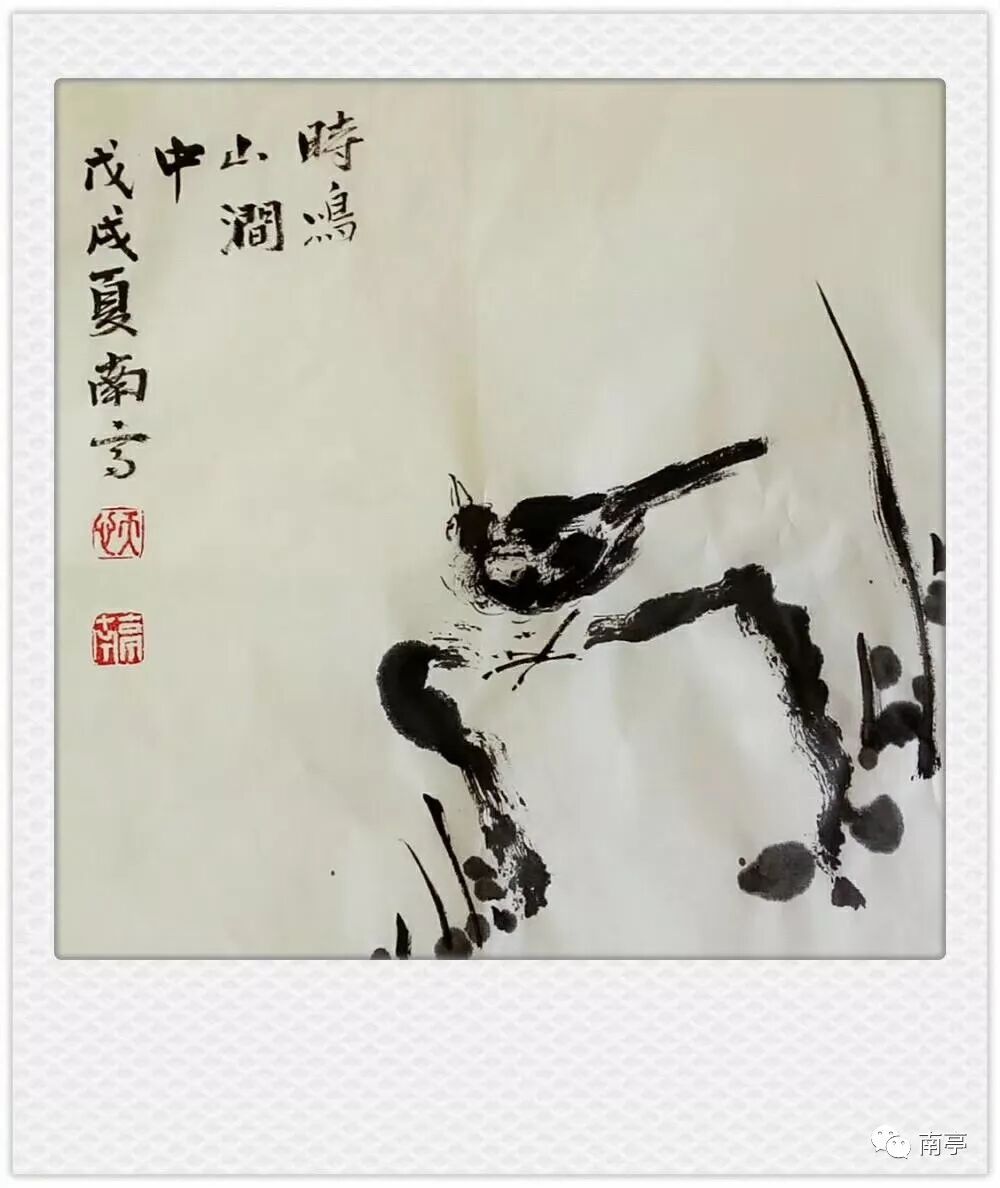 時鳴
山澗
中
戊戌夏南亭
南亭
南亭